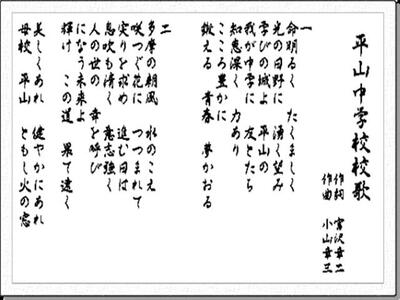 平山中学校校歌
作詞 宮沢章二
作曲 小山章三
一
命明るく たくましく
光の日野に 湧く望み
学びの城よ 平山の
我が中学に 友とたち
知恵深く 力あり
こころ豊かに
鍛える 青春 夢かおる
二
多摩の朝風 水のこえ
咲つぐ花に つつまれて
実りを求め 進む日は
息吹も清く 意志強く
人の世の 幸を呼び
になう未来よ
輝け この道 果て遠く
美しくあれ 健やかにあれ
母校 平山 ともし火の窓